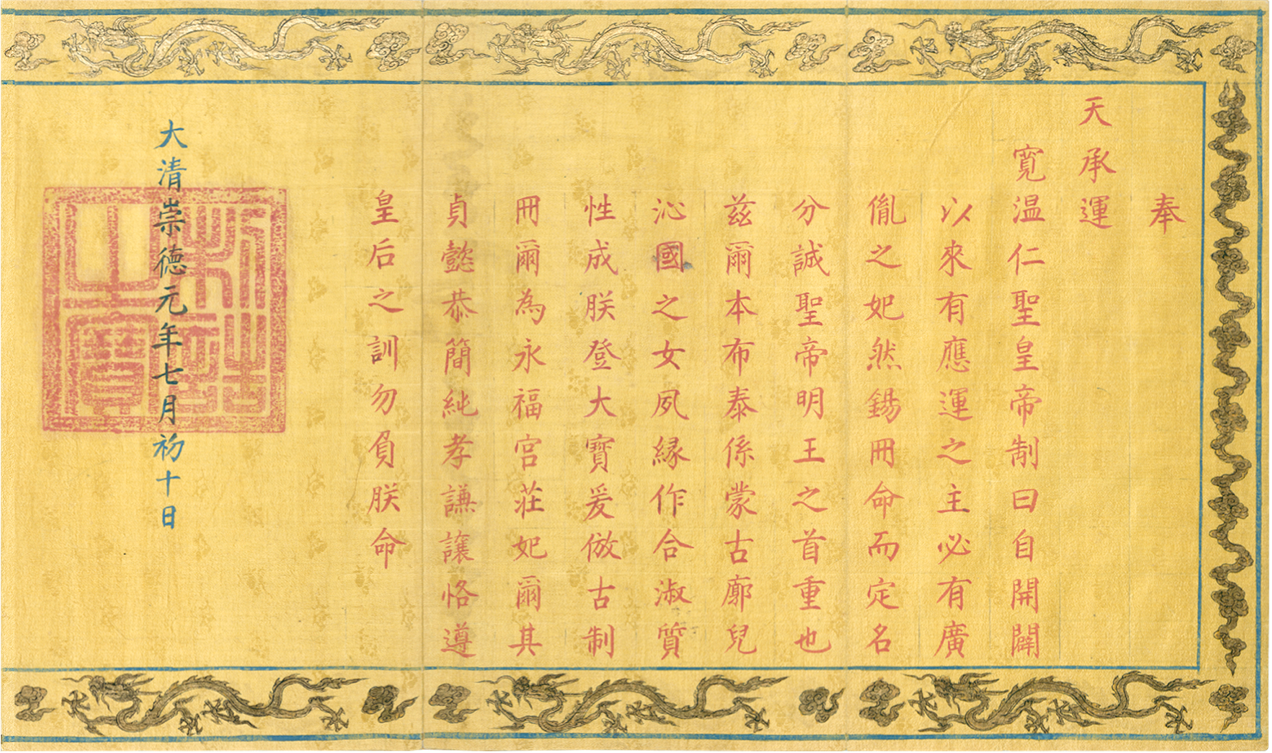 奉
天承運
寬温仁聖皇帝制曰自開闢
以來有應運之主必有廣
胤之妃然錫冊命而定名
分誠聖帝明王之首重也
茲爾本布泰係蒙古廓兒
沁國之女夙緣作合淑質
性成朕登大寶爰倣古制
冊爾為永福宮莊妃爾其
貞懿恭簡純孝謙讓恪遵
皇后之訓勿負朕命
大清崇德元年七月初十日